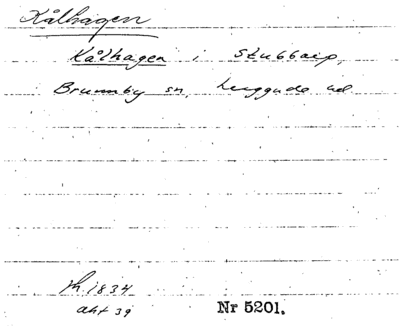 Kålhagen
Kålhagen i Stubbarp,
Brunnby sn, Luggude hd
1834
akt 39 Nr 5201.